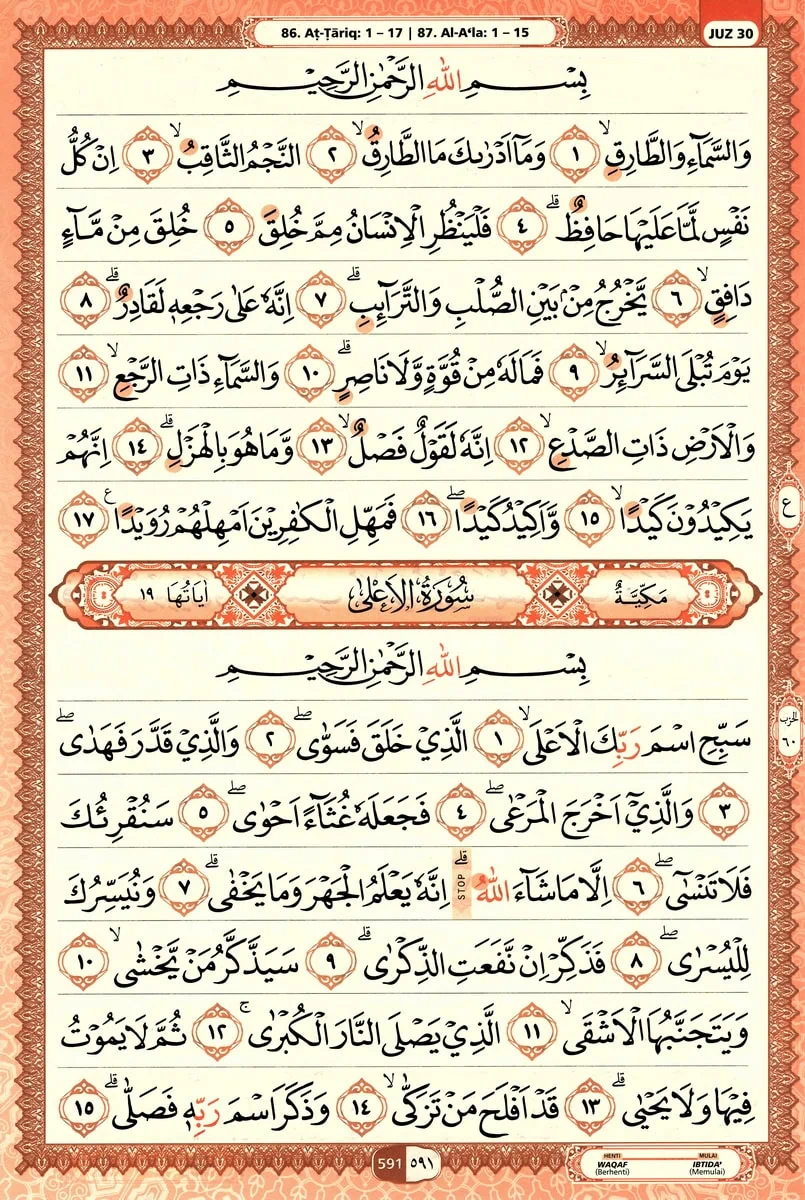 86. Aṭ-Ṭāriq: 1 – 17 | 87. Al-A'la: 1 – 15
JUZ 30
بِسْمِ اللّٰهِ الرَّحْمٰنِ الرَّحِيْمِ
وَالسَّمَاۤءِ وَالطَّارِقِۙ ١ وَمَآ اَدْرٰىكَ مَا الطَّارِقُۙ ٢ النَّجْمُ الثَّاقِبُۙ ٣ اِنْ كُلُّ
نَفْسٍ لَّمَّا عَلَيْهَا حَافِظٌۗ ٤ فَلْيَنْظُرِ الْاِنْسَانُ مِمَّ خُلِقَ ٥ خُلِقَ مِنْ مَّاۤءٍ
دَافِقٍۙ ٦ يَّخْرُجُ مِنْۢ بَيْنِ الصُّلْبِ وَالتَّرَاۤىِٕبِۗ ٧ اِنَّهٗ عَلٰى رَجْعِهٖ لَقَادِرٌۗ ٨
يَوْمَ تُبْلَى السَّرَاۤىِٕرُۙ ٩ فَمَا لَهٗ مِنْ قُوَّةٍ وَّلَا نَاصِرٍۗ ١٠ وَالسَّمَاۤءِ ذَاتِ الرَّجْعِۙ ١١
وَالْاَرْضِ ذَاتِ الصَّدْعِۙ ١٢ اِنَّهٗ لَقَوْلٌ فَصْلٌۙ ١٣ وَّمَا هُوَ بِالْهَزْلِۗ ١٤ اِنَّهُمْ
يَكِيْدُوْنَ كَيْدًاۙ ١٥ وَّاَكِيْدُ كَيْدًاۖ ١٦ فَمَهِّلِ الْكٰفِرِيْنَ اَمْهِلْهُمْ رُوَيْدًا ࣖ ١٧
ع
مَكِّيَّةٌ سُوْرَةُ الْاَعْلٰى اٰيَاتُهَا ١٩
بِسْمِ اللّٰهِ الرَّحْمٰنِ الرَّحِيْمِ
سَبِّحِ اسْمَ رَبِّكَ الْاَعْلَىۙ ١ الَّذِيْ خَلَقَ فَسَوّٰىۖ ٢ وَالَّذِيْ قَدَّرَ فَهَدٰىۖ
٣ وَالَّذِيْٓ اَخْرَجَ الْمَرْعٰىۖ ٤ فَجَعَلَهٗ غُثَاۤءً اَحْوٰىۖ ٥ سَنُقْرِئُكَ
فَلَا تَنْسٰىٓۖ ٦ اِلَّا مَا شَاۤءَ اللّٰهُۗ STOP اِنَّهٗ يَعْلَمُ الْجَهْرَ وَمَا يَخْفٰىۗ ٧ وَنُيَسِّرُكَ
لِلْيُسْرٰىۖ ٨ فَذَكِّرْ اِنْ نَّفَعَتِ الذِّكْرٰىۗ ٩ سَيَذَّكَّرُ مَنْ يَّخْشٰىۙ ١٠
وَيَتَجَنَّبُهَا الْاَشْقَىۙ ١١ الَّذِيْ يَصْلَى النَّارَ الْكُبْرٰىۚ ١٢ ثُمَّ لَا يَمُوْتُ
فِيْهَا وَلَا يَحْيٰىۗ ١٣ قَدْ اَفْلَحَ مَنْ تَزَكّٰىۙ ١٤ وَذَكَرَ اسْمَ رَبِّهٖ فَصَلّٰىۗ ١٥
الحزب
٦٠
591 ٥٩١
HENTI MULAI
WAQAF IBTIDA'
(Berhenti) (Memulai)